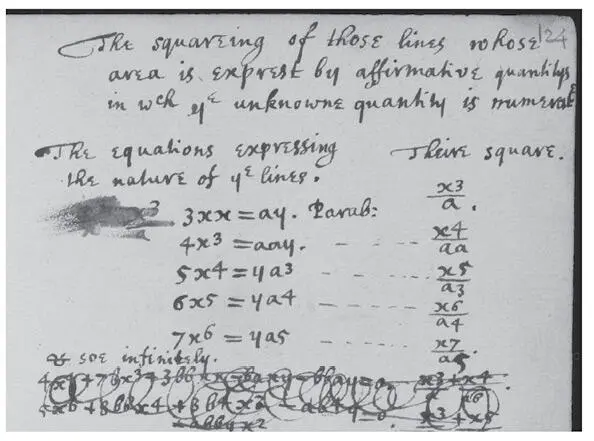 124
The squareing of those lines whose
area is exprest by affirmative quantitys
in wch ye unknowne quantity is numerat
The equations expressing Theire square.
the nature of ye lines.
3xx = ay. Parab: x3/a.
4x3 = aay. - - - - x4/aa
5x4 = ya3 - - - - x5/a3
6x5 = ya4 - - - - x6/a4
7x6 = ya5 - - - - x7/a5
& soe infinitely.